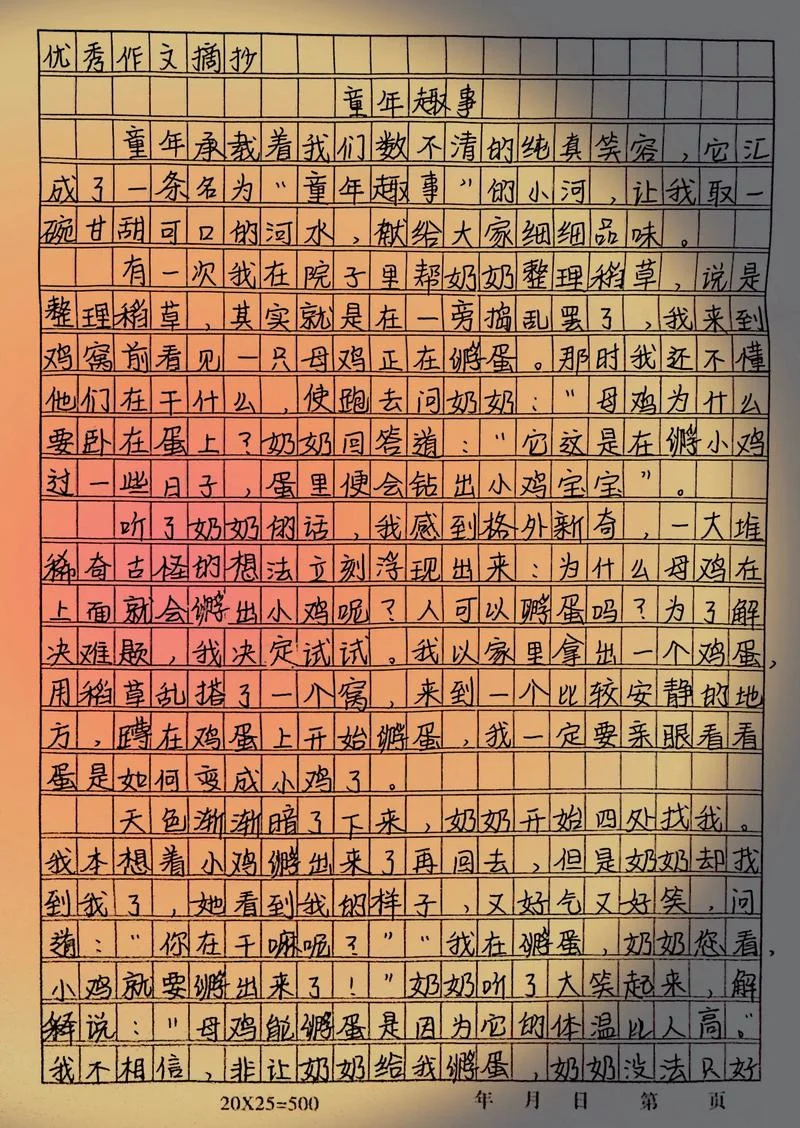 优秀作文摘抄
童年趣事
童年承载着我们数不清的纯真笑容，它汇
成了一条名为“童年趣事”的小河，让我取一
碗甘甜可口的河水，献给大家细细品味。
有一次我在院子里帮奶奶整理稻草，说是
整理稻草，其实就是在一旁捣乱罢了，我来到
鸡窝前看见一只母鸡正在孵蛋。那时我还不懂
他们在干什么，使跑去问奶奶：“母鸡为什么
要卧在蛋上？奶奶回答道：“它这是在孵小鸡
过一些日子，蛋里便会钻出小鸡宝宝”。
听了奶奶的话，我感到格外新奇，一大堆
稀奇古怪的想法立刻浮现出来：为什么母鸡在
上面就会孵出小鸡呢？人可以孵蛋吗？为了解
决难题，我决定试试。我以家里拿出一个鸡蛋，
用稻草乱搭了一个窝，来到一个比较安静的地
方，蹲在鸡蛋上开始孵蛋，我一定要亲眼看看
蛋是如何变成小鸡了。
天色渐渐暗了下来，奶奶开始四处找我。
我本想着小鸡孵出来了再回去，但是奶奶却找
到我了，她看到我的样子，又好气又好笑，问
道：“你在干嘛呢？”“我在孵蛋，奶奶您看，
小鸡就要孵出来了！”奶奶听了大笑起来，解
释说：“母鸡能孵蛋是因为它的体温比人高。”
我不相信，非让奶奶给我孵蛋，奶奶没法只好
20X25=500 年 月 日 第 页